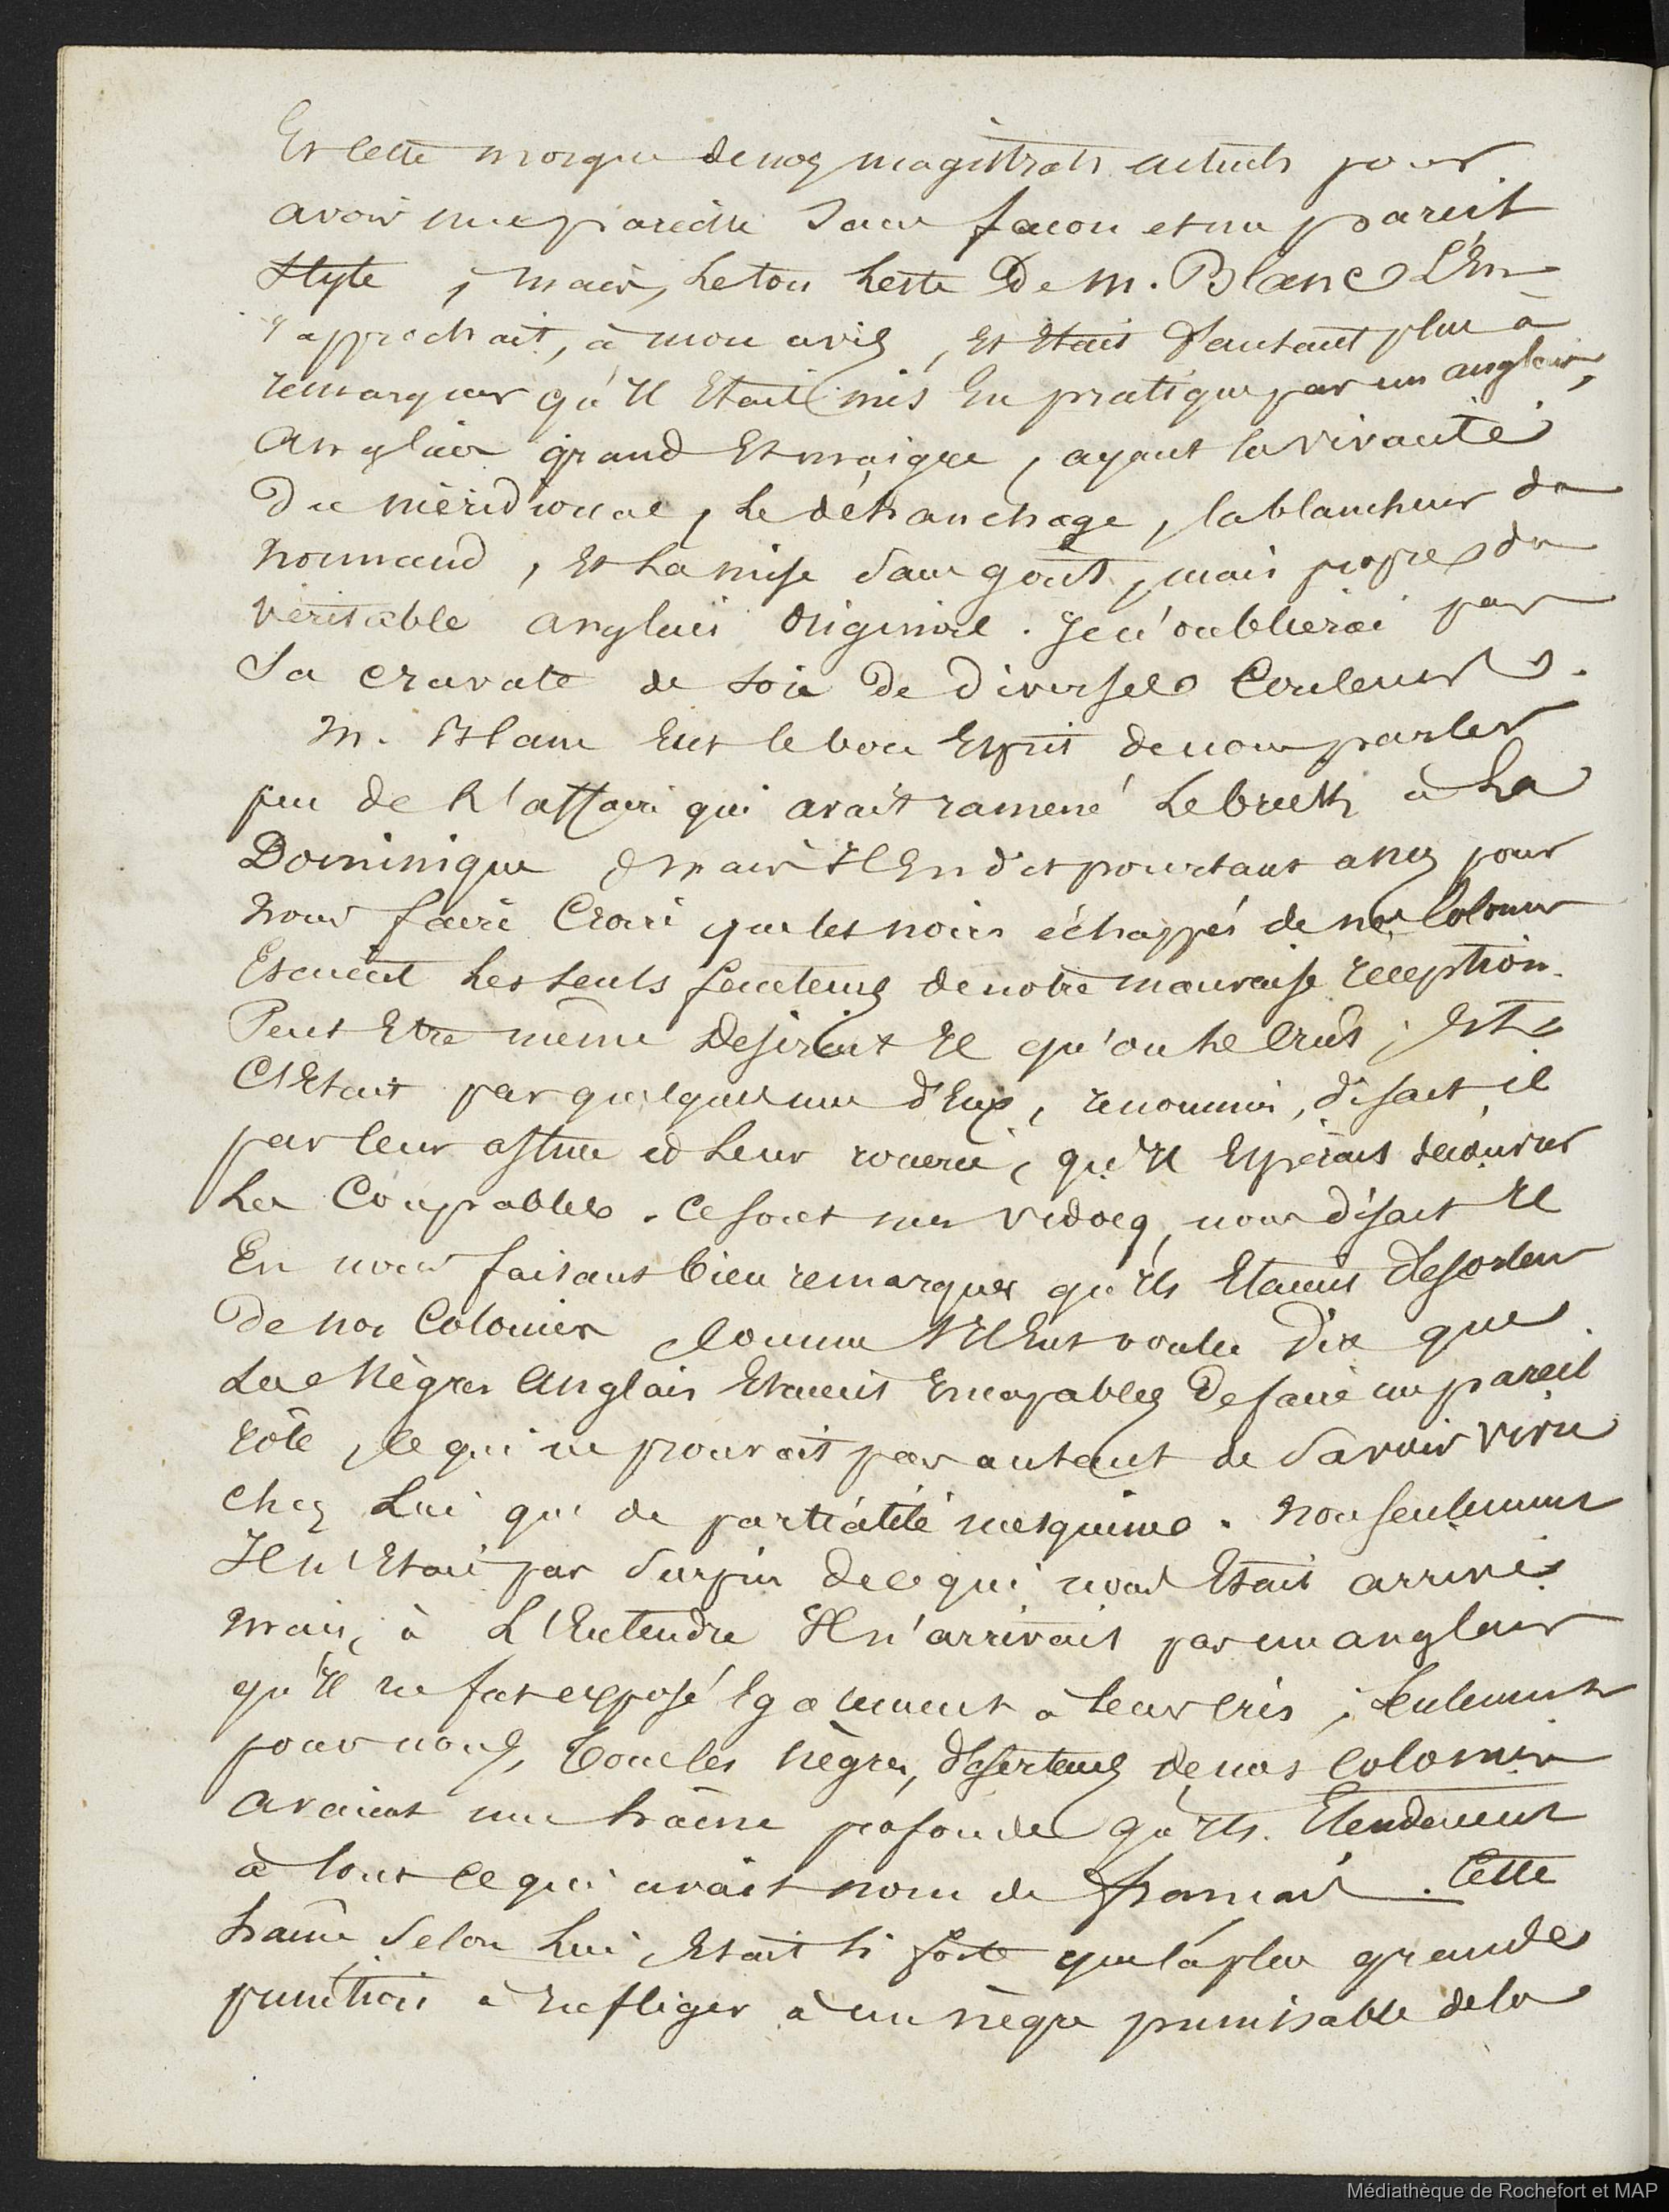 Et cette morgue de nos magistrats actuels pour
avoir une pareille sans façon et un pareil
Style, mais, le ton leste De M. Blanc L'En
rapprochait, à mon avis, et Etait d'autant plus à
remarquer qu'Il Etait mis En pratique par un anglais,
Anglais grand Et maigre, ayant la vivacité
Du méridional, le déhanchage, la blancheur du
Normand, Et La mise sans goût, mais propre du
Véritable anglais Originaire. Je n'oublierai pas
Sa cravate de soie De Diverses Couleurs.
M. Blanc Eut le bon Esprit de nous parler
peu de L'affaire qui avait ramené Le brick à La
Dominique mais Il En dit pourtant assez pour
Nous faire Croire que les noirs échappés de nos Colonies
Etaient Les seuls fauteurs de notre mauvaise réception.
Peut Etre même Desirait Il qu'on le Crut; Et
C'Etait par quelques uns d'Eux, renommés, disait il
par leur astuce et Leur rouerie, qu'Il Espérait découvrir
Les Coupables. Ce sont mes Vidocq, nous disait Il
En nous faisant bien remarquer qu'Ils Etaient Deserteurs
De nos Colonies Comme s'Il Eut voulu Dire que
Les Nègres Anglais Etaient Incapables De faire un pareil
rôle, Ce qui ne prouvait pas autant de Savoir vivre
chez Lui que de partialité mesquine. Non seulement
Il n'Etait pas Surpris De ce qui nous Etait arrivé
Mais, à L'Entendre Il n'arrivait pas un anglais
qu'Il ne fut exposé Egalement à leurs Cris; Seulement
pour nous, tous les Nègres, déserteurs de nos Colonies
avaient une haine profonde qu'Ils Etendaient
à tout Ce qui avait nom de français. Cette
haine Selon Lui, Etait si forte que la plus grande
punition à Infliger à un nègre punissable de la